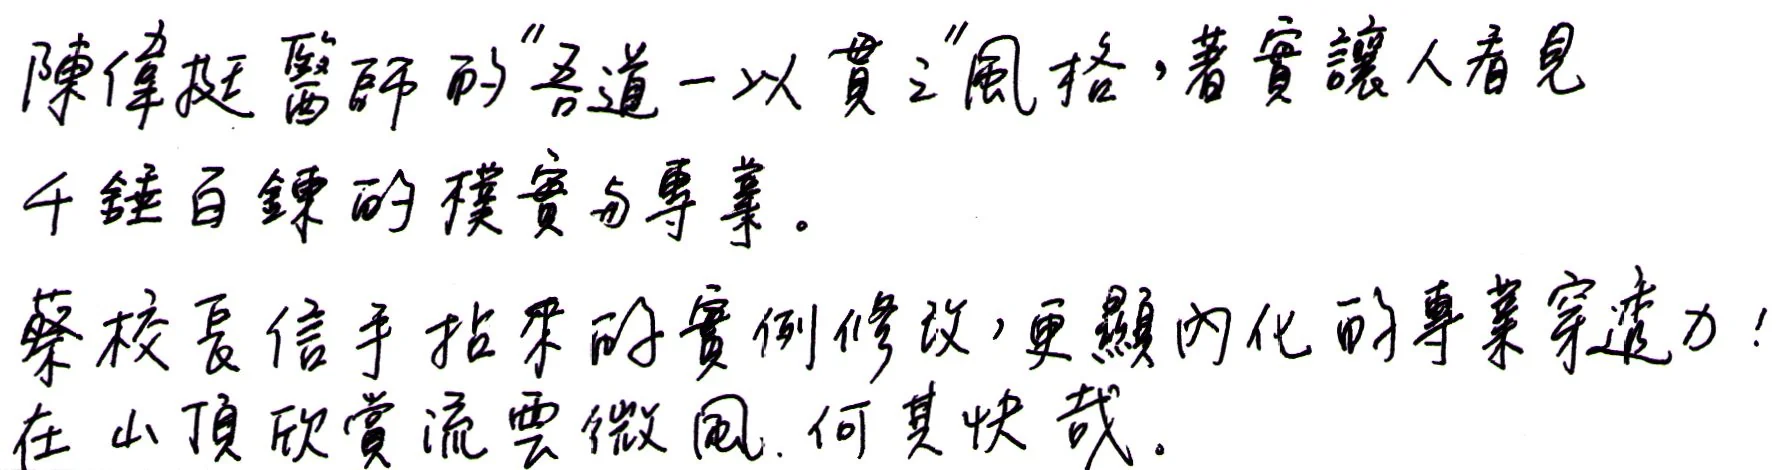 陳偉挺醫師的"吾道一以貫之"風格，著實讓人看見
千錘百鍊的樸實与專業。
蔡校長信手拈來的實例修改，更顯內化的專業穿透力！
在山頂欣賞流雲微風.何其快哉。